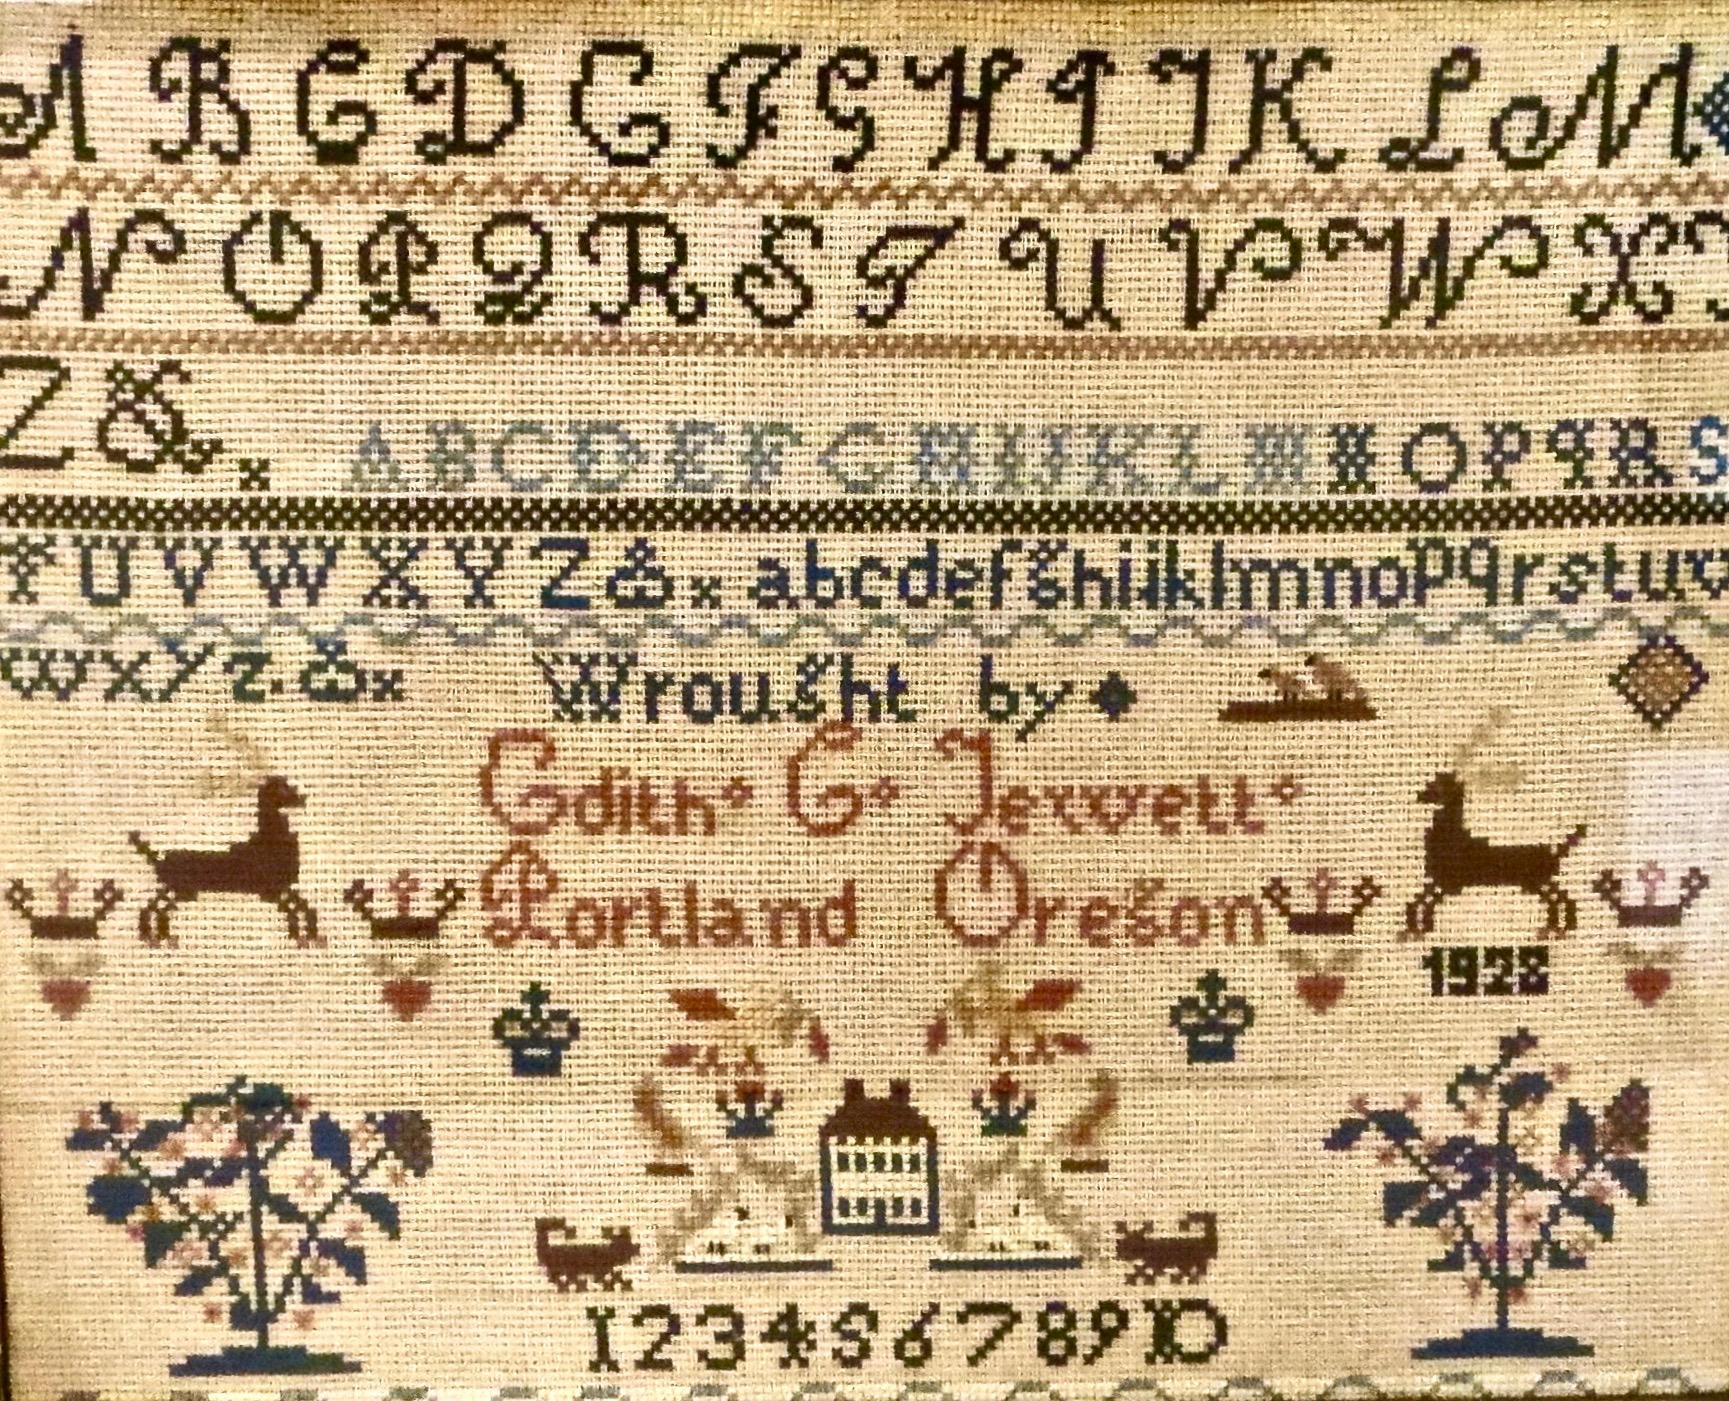 A B C D E F G H I J K L M
N O P Q R S T U V W X Y
Z & x A B C D E F G H I J K L M N O P Q R S
T U V W X Y Z & x a b c d e f g h i j k l m n o p q r s t u v
w x y z . & x Wrought by
Edith C Jewett
Portland Oregon
1928
1 2 3 4 5 6 7 8 9 10